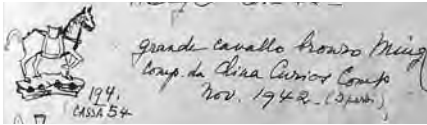 grande cavallo bronzo Ming
comp. da China Curios Comp
Nov. 1942
194.
CASSA 54